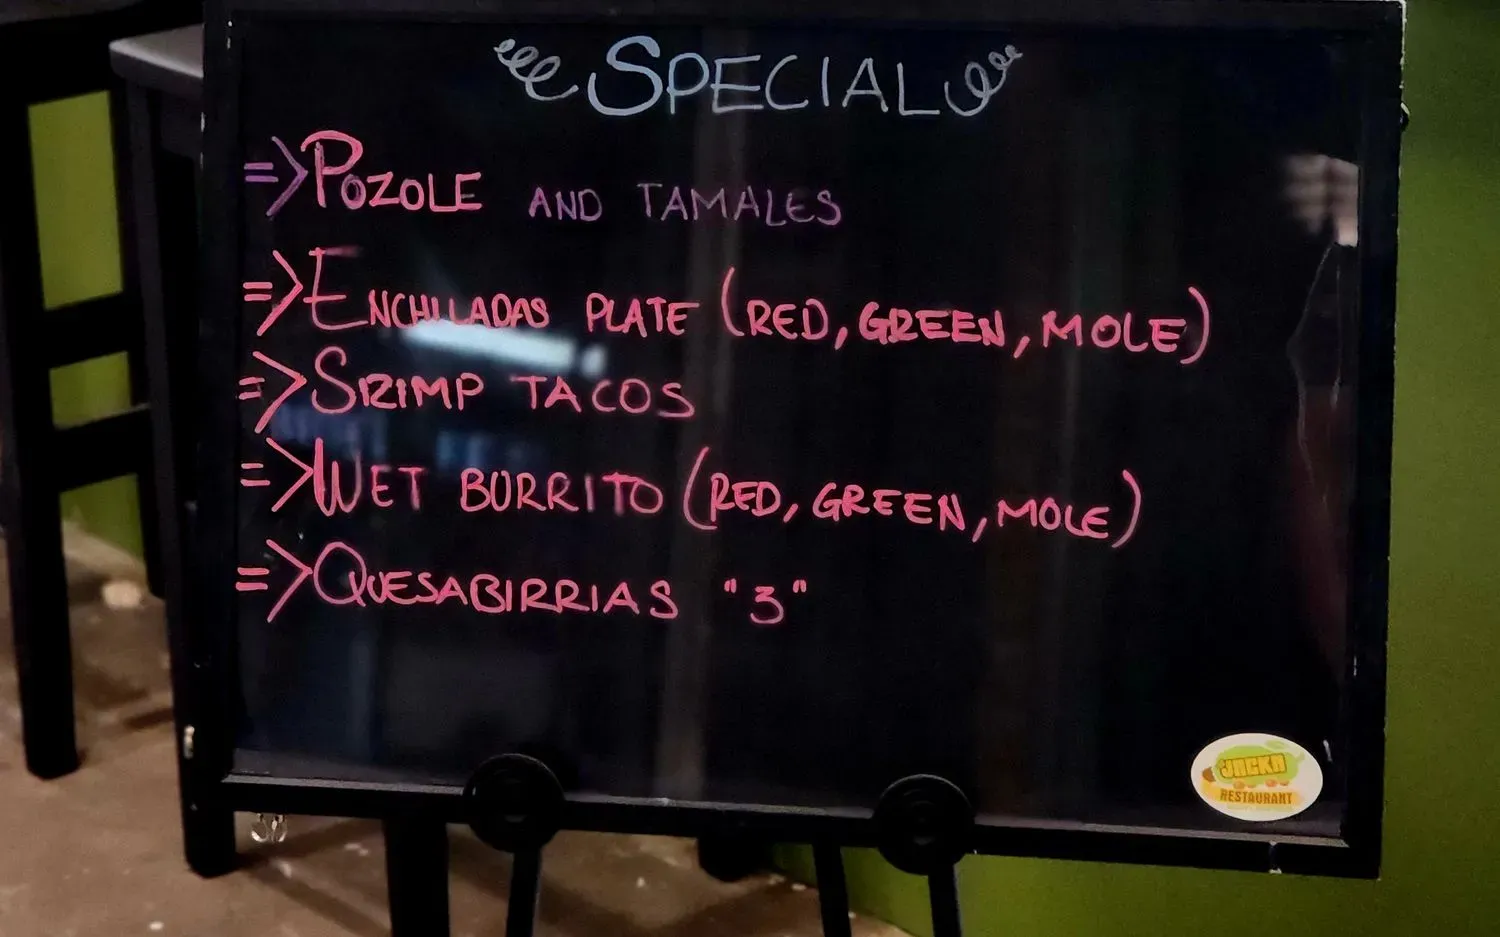 SPECIAL
=> POZOLE AND TAMALES
=> ENCHILADAS PLATE (RED, GREEN, MOLE)
=> SRIMP TACOS
=> WET BURRITO (RED, GREEN, MOLE)
=> QUESABIRRIAS "3"
JACKA
RESTAURANT